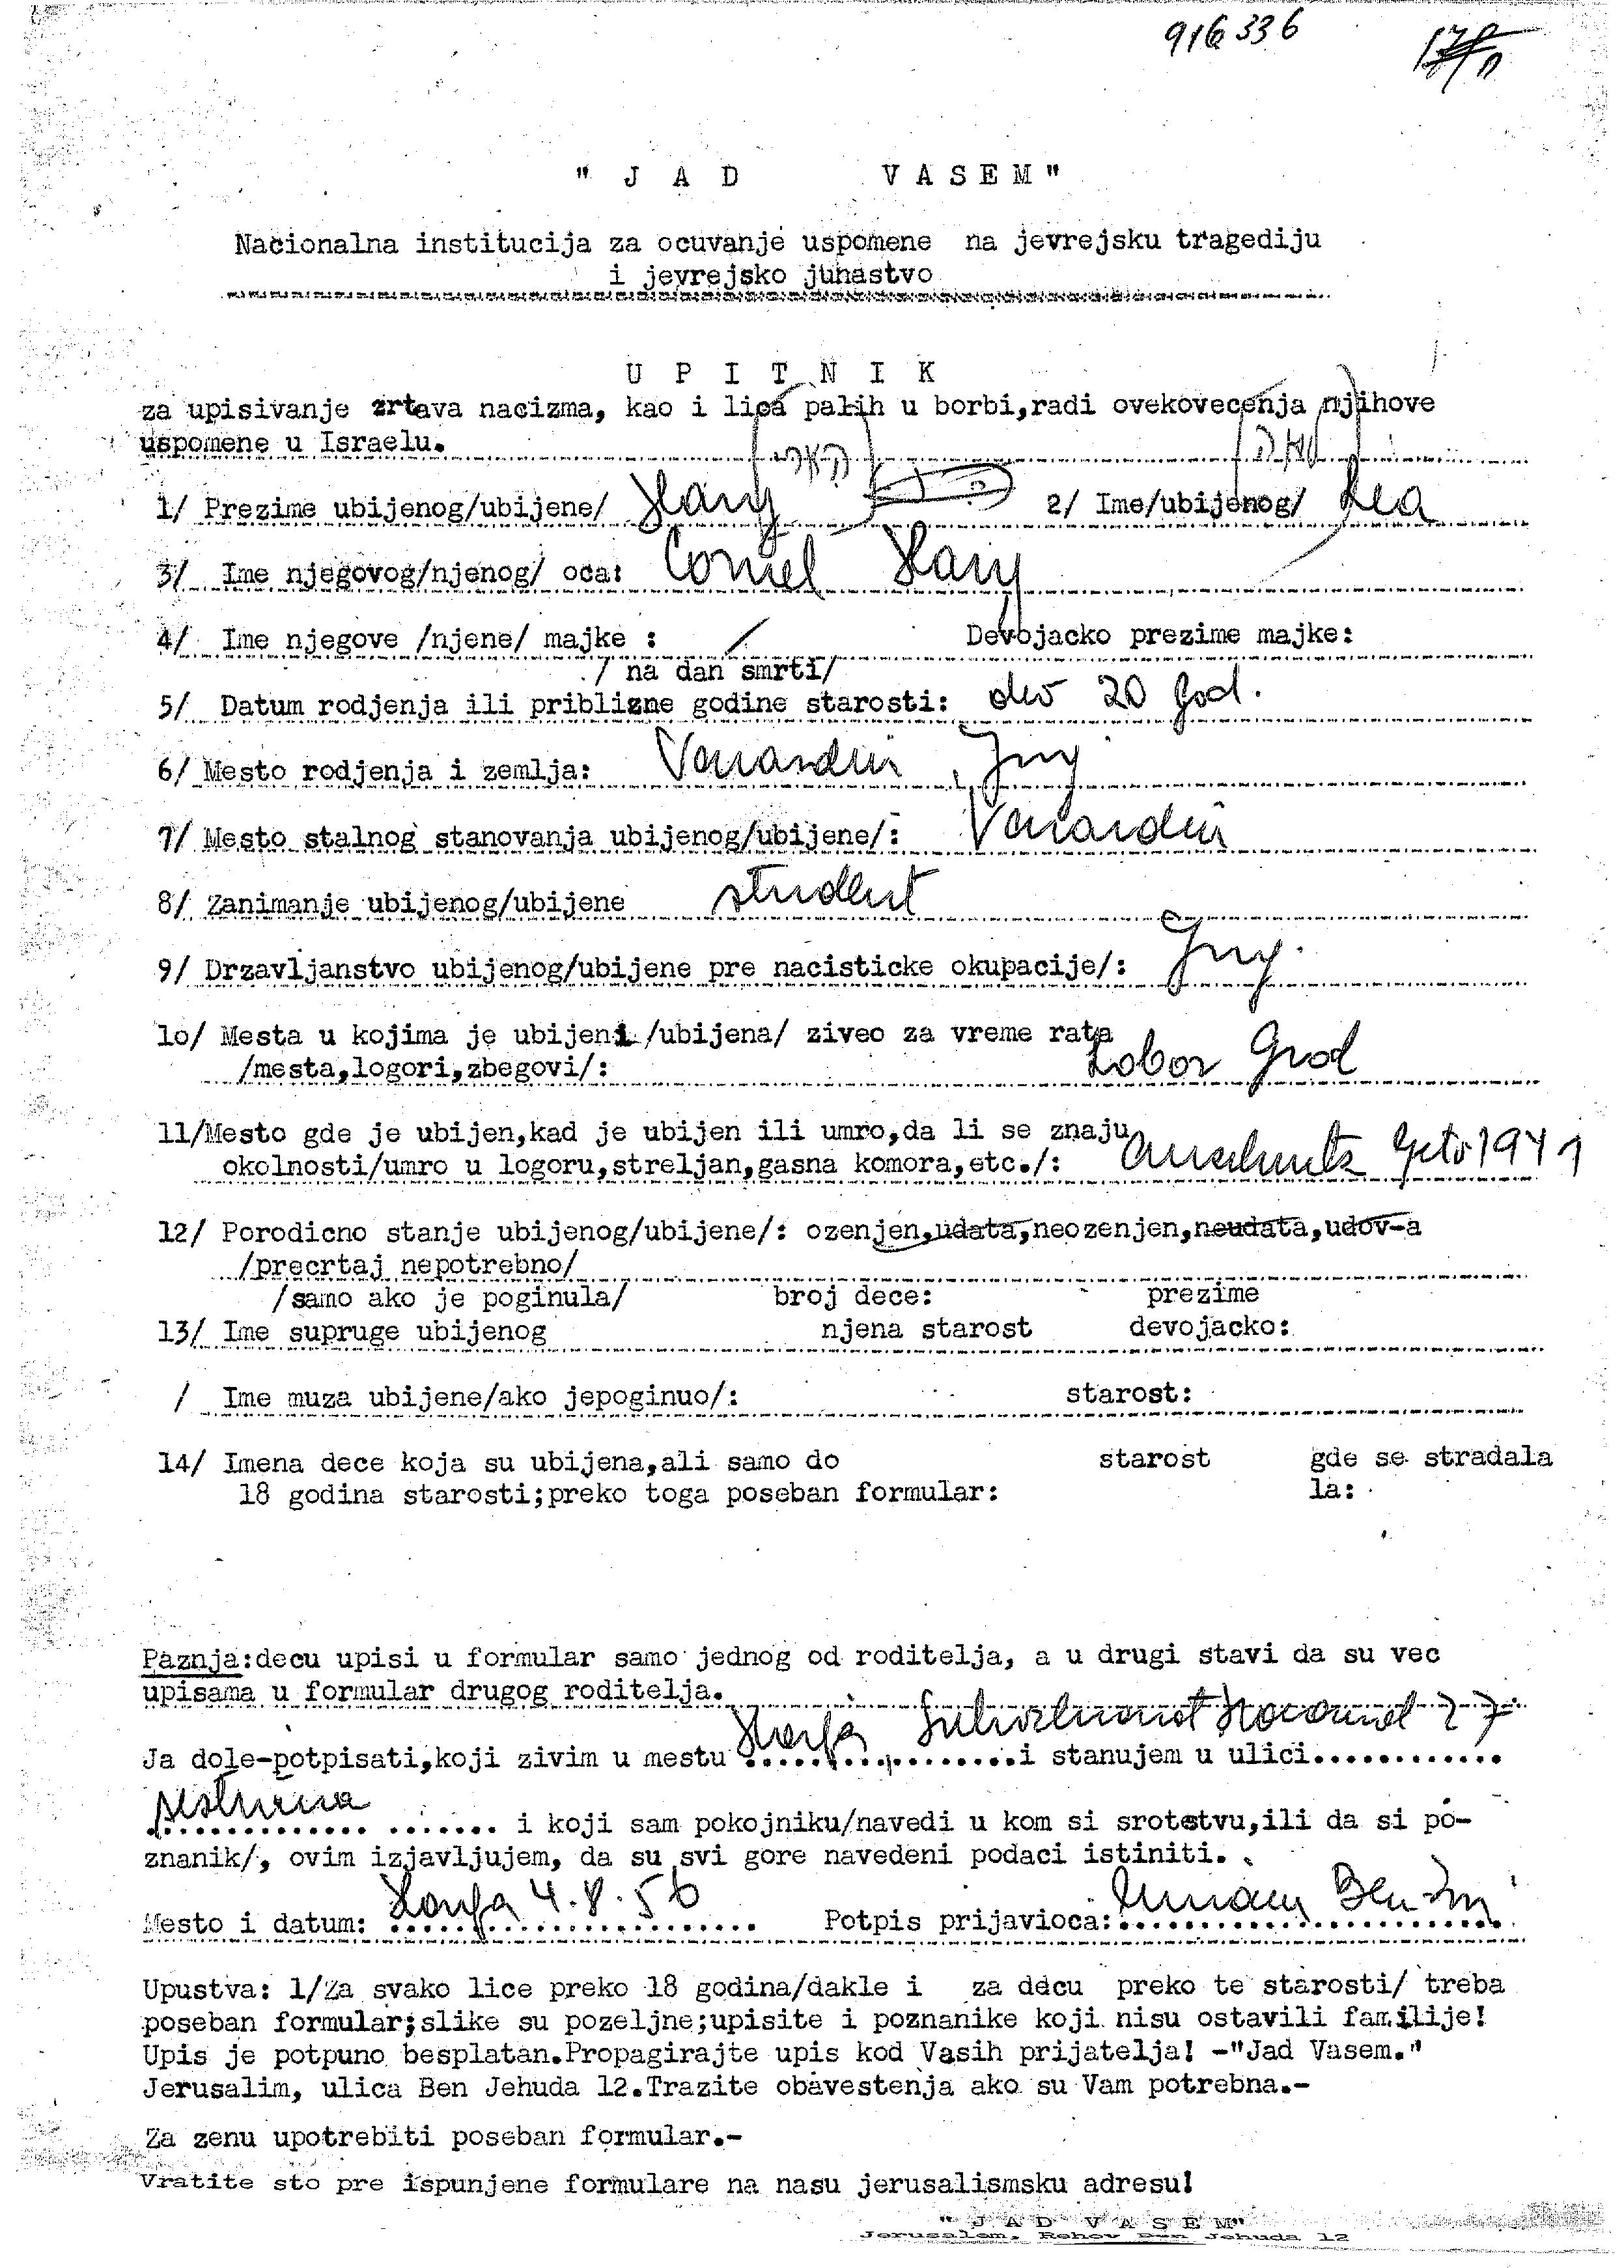 916336
"JAD VASEM"
Nacionalna institucija za ocuvanje uspomene na jevrejsku tragediju
i jevrejsko junastvo
UPITNIK
za upisivanje zrtava nacizma, kao i lica palih u borbi,radi ovekovecenja njihove
uspomene u Israelu.
1/ Prezime ubijenog/ubijene/ Hary 2/ Ime/ubijenog/ Lea
3/ Ime njegovog/njenog/ oca: Cornel Hary
4/ Ime njegove /njene/ majke : / Devojacko prezime majke:
/ na dan smrti/
5/ Datum rodjenja ili priblizne godine starosti: 20 god.
6/ Mesto rodjenja i zemlja: Varasdin, Jug
7/ Mesto stalnog stanovanja ubijenog/ubijene/: Varasdin
8/ Zanimanje ubijenog/ubijene student
9/ Drzavljanstvo ubijenog/ubijene pre nacisticke okupacije/: Jug.
lo/ Mesta u kojima je ubijeni /ubijena/ ziveo za vreme rata
/mesta,logori,zbegovi/: Lobor Grad
11/Mesto gde je ubijen,kad je ubijen ili umro,da li se znaju
okolnosti/umro u logoru,streljan,gasna komora,etc./: Auschwitz 1941
12/ Porodicno stanje ubijenog/ubijene/: ozenjen,udata,neozenjen,neudata,udov-a
/precrtaj nepotrebno/
/samo ako je poginula/ broj dece: prezime
13/ Ime supruge ubijenog njena starost devojacko:
/ Ime muza ubijene/ako jepoginuo/: starost:
14/ Imena dece koja su ubijena,ali samo do starost gde se stradala
18 godina starosti;preko toga poseban formular: la:
Paznja:decu upisi u formular samo jednog od roditelja, a u drugi stavi da su vec
upisama u formular drugog roditelja.
Ja dole-potpisati,koji zivim u mestu Haifa i stanujem u ulici............
sestricna ....... i koji sam pokojniku/navedi u kom si srotstvu,ili da si po-
znanik/, ovim izjavljujem, da su svi gore navedeni podaci istiniti.
Mesto i datum: Haifa 4.8.56 Potpis prijavioca: Miriam
Upustva: 1/Za svako lice preko 18 godina/dakle i za decu preko te starosti/ treba
poseban formular;slike su pozeljne;upisite i poznanike koji nisu ostavili familije!
Upis je potpuno besplatan.Propagirajte upis kod Vasih prijatelja! -"Jad Vasem."
Jerusalim, ulica Ben Jehuda 12.Trazite obavestenja ako su Vam potrebna.-
Za zenu upotrebiti poseban formular.-
Vratite sto pre ispunjene formulare na nasu jerusalismsku adresu!
"JAD VASEM"
Jerusalem, Rehov Ben Jehuda 12